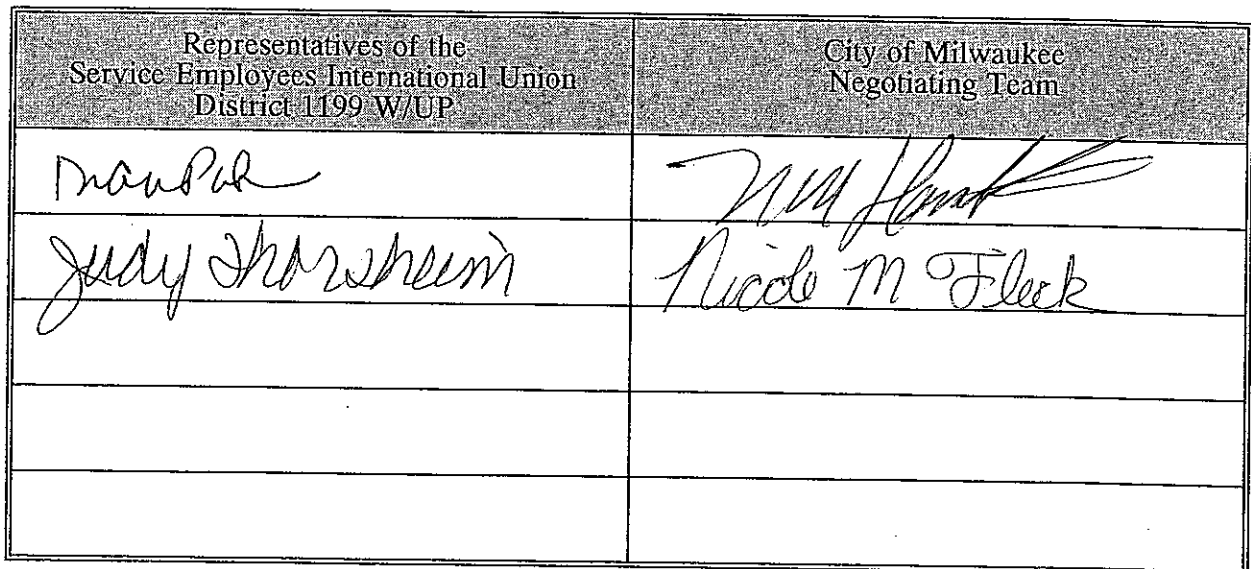 Representatives of the
Service Employees International Union
District 1199 W/UP
City of Milwaukee
Negotiating Team
Judy Thorsheim
Nicole M Fleck